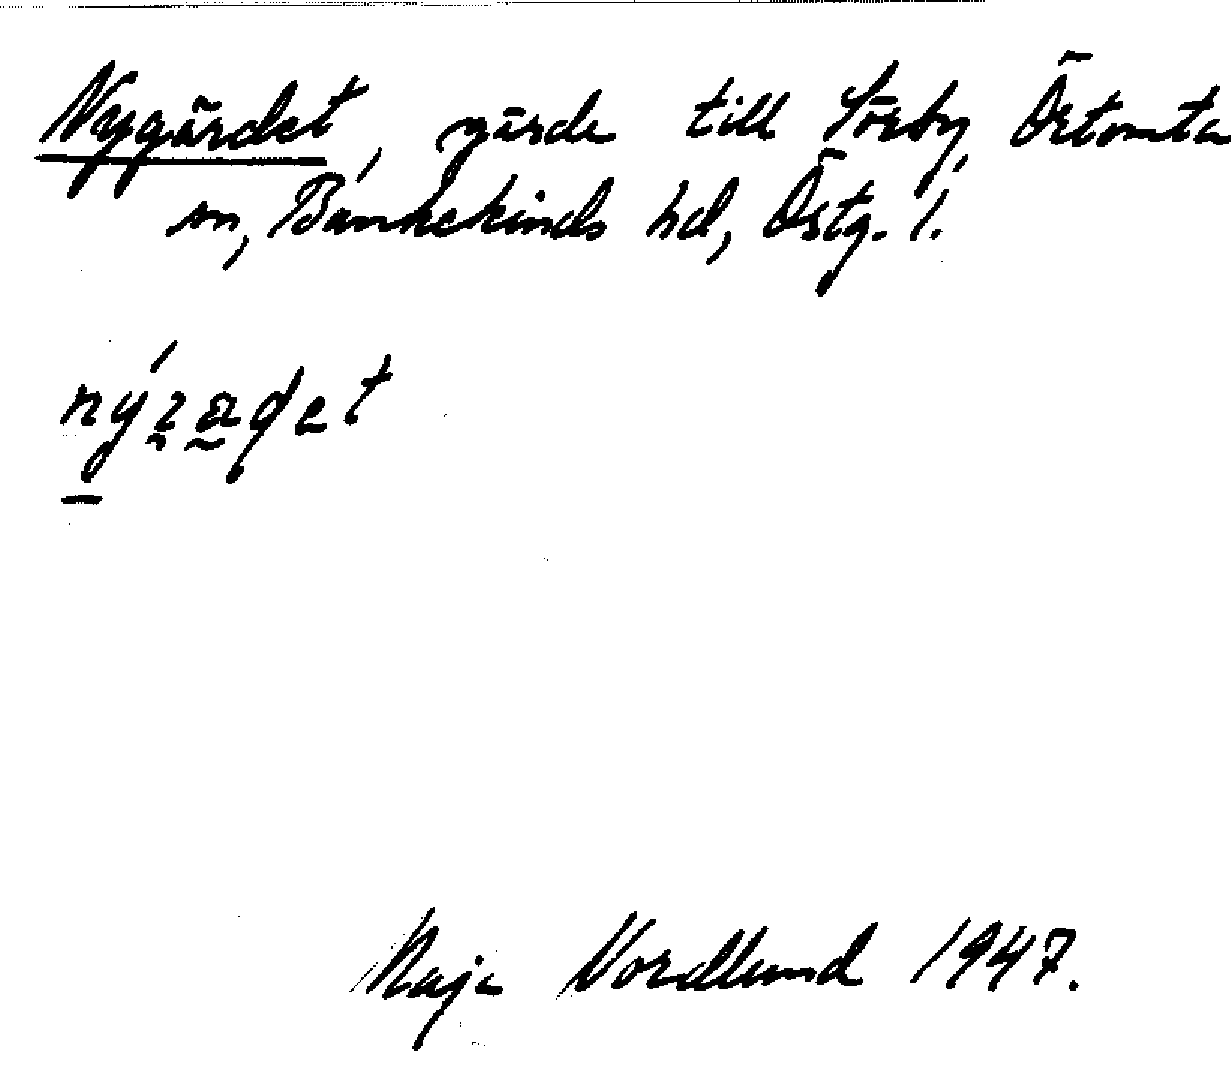 Nygärdet, gärde till Sörby, Örtomta
sn, Bankekinds hd, Östg. l.
Maja Nordlund 1947.